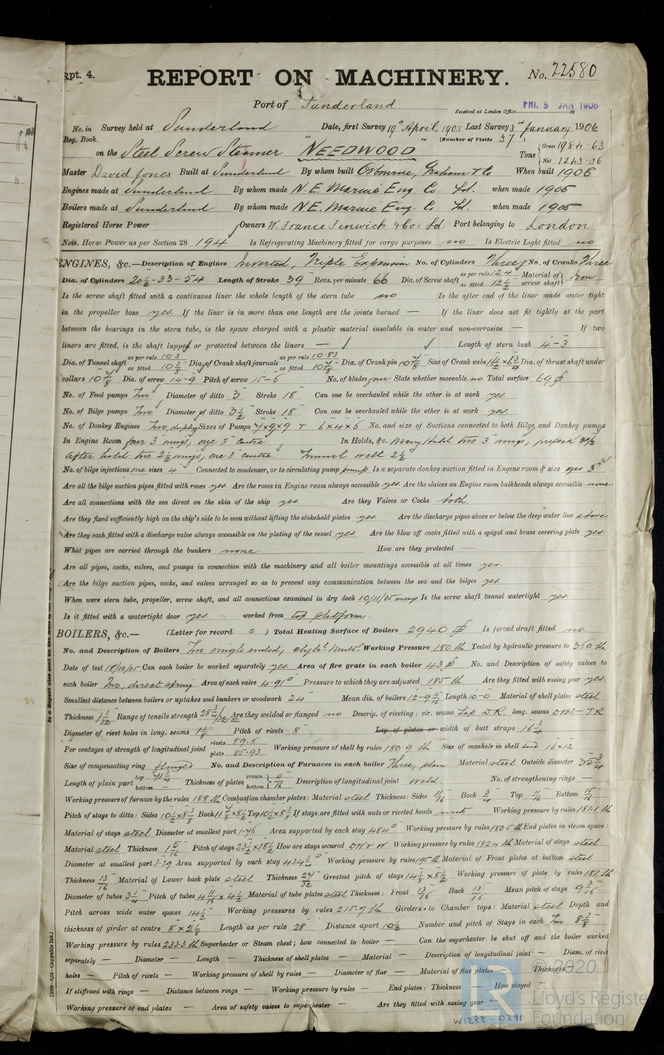 Rpt. 4.
REPORT ON MACHINERY.
No. 22580
Port of Sunderland
Received at London Office
FRI. 5 JAN 1906
No. in Survey held at Sunderland Date, first Survey 19th April, 1905 Last Survey 3rd January 1906
Reg. Book. (Number of Visits 37)
on the Steel Screw Steamer "NEEDWOOD" Tons Gross 1984.63 Net 1243.36
Master David Jones Built at Sunderland By whom built Osbourne, Graham & Co When built 1906
Engines made at Sunderland By whom made N.E. Marine Eng. Co. Ld. when made 1905
Boilers made at Sunderland By whom made N.E. Marine Eng. Co Ld. when made 1905
Registered Horse Power Owners W. France Fenwick & Co. Ld Port belonging to London
Nom. Horse Power as per Section 28 194 Is Refrigerating Machinery fitted for cargo purposes no Is Electric Light fitted no
ENGINES, &c.—Description of Engines Inverted, Triple Expansion No. of Cylinders Three No. of Cranks Three
Dia. of Cylinders 20½-33-54 Length of Stroke 39" Revs. per minute 66 Dia. of Screw shaft as per rule as fitted Material of screw shaft Iron
Is the screw shaft fitted with a continuous liner the whole length of the stern tube no Is the after end of the liner made water tight
in the propeller boss yes. If the liner is in more than one length are the joints burned — If the liner does not fit tightly at the part
between the bearings in the stern tube, is the space charged with a plastic material insoluble in water and non-corrosive — If two
liners are fitted, is the shaft lapped or protected between the liners — Length of stern bush 4-3
Dia. of Tunnel shaft as per rule 10.3 as fitted Dia. of Crank shaft journals as per rule 10.83 as fitted Dia. of Crank pin 10⅞ Size of Crank webs Dia. of thrust shaft under
collars 10⅞ Dia. of screw 14-9 Pitch of screw 15-6 No. of blades four State whether moveable no Total surface 69
No. of Feed pumps Two Diameter of ditto 3 Stroke 18" Can one be overhauled while the other is at work yes
No. of Bilge pumps Two Diameter of ditto 3½ Stroke 18" Can one be overhauled while the other is at work yes.
No. of Donkey Engines Two, duplex Sizes of Pumps & 6x4x6 No. and size of Suctions connected to both Bilge and Donkey pumps
In Engine Room four 3" wings, one 3" centre In Holds, &c. Main hold two 3" wings,
After hold two 2½ wings, one 3" centre Tunnel well 2½
No. of bilge injections one sizes 4" Connected to condenser, or to circulating pump pump Is a separate donkey suction fitted in Engine room & size yes 3"
Are all the bilge suction pipes fitted with roses yes Are the roses in Engine room always accessible yes Are the sluices on Engine room bulkheads always accessible none
Are all connections with the sea direct on the skin of the ship yes Are they Valves or Cocks both.
Are they fixed sufficiently high on the ship's side to be seen without lifting the stokehold plates yes Are the discharge pipes above or below the deep water line above
Are they each fitted with a discharge valve always accessible on the plating of the vessel yes. Are the blow off cocks fitted with a spigot and brass covering plate yes
What pipes are carried through the bunkers none How are they protected —
Are all pipes, cocks, valves, and pumps in connection with the machinery and all boiler mountings accessible at all times yes.
Are the bilge suction pipes, cocks, and valves arranged so as to prevent any communication between the sea and the bilges yes.
When were stern tube, propeller, screw shaft, and all connections examined in dry dock 10/11/05 Is the screw shaft tunnel watertight yes.
Is it fitted with a watertight door yes worked from top platform.
BOILERS, &c.— (Letter for record S ) Total Heating Surface of Boilers 2940 Is forced draft fitted no.
No. and Description of Boilers Two single ended, Working Pressure 180 lb Tested by hydraulic pressure to 360 lb
Date of test 18/10/05 Can each boiler be worked separately yes Area of fire grate in each boiler 43 No. and Description of safety valves to
each boiler Two, direct spring Area of each valve 4.91" Pressure to which they are adjusted 185 lb Are they fitted with easing gear yes.
Smallest distance between boilers or uptakes and bunkers or woodwork 24" Mean dia. of boilers Length 10-0 Material of shell plates steel
Thickness Range of tensile strength Are they welded or flanged no Descrip. of riveting: cir. seams Lap D.R. long. seams DBS-TR
Diameter of rivet holes in long. seams Pitch of rivets 8" Lap of plates or width of butt straps 16¾
Per centages of strength of longitudinal joint rivets 89.6 plate 85.93 Working pressure of shell by rules 180.9 lb Size of manhole in shell end 16x12
Size of compensating ring flanged No. and Description of Furnaces in each boiler Three, plain Material steel Outside diameter
Length of plain part top bottom Thickness of plates crown bottom Description of longitudinal joint weld. No. of strengthening rings —
Working pressure of furnace by the rules 188 lb Combustion chamber plates: Material steel Thickness: Sides 11/16 Back ¾ Top 11/16 Bottom 15/16
Pitch of stays to ditto: Sides Back Top If stays are fitted with nuts or riveted heads nuts Working pressure by rules 181.1 lb
Material of stays steel Diameter at smallest part 1.76 Area supported by each stay Working pressure by rules 180.5 lb End plates in steam space:
Material steel Thickness Pitch of stays How are stays secured DN & W Working pressure by rules 182.4 lb Material of stays steel
Diameter at smallest part Area supported by each stay Working pressure by rules 195 lb Material of Front plates at bottom steel
Thickness 13/16 Material of Lower back plate steel Thickness Greatest pitch of stays Working pressure of plate by rules
Diameter of tubes Pitch of tubes Material of tube plates steel Thickness: Front 13/16 Back 13/16 Mean pitch of stays
Pitch across wide water spaces 14½ Working pressures by rules Girders to Chamber tops: Material steel Depth and
thickness of girder at centre Length as per rule 28 Distance apart 10½ Number and pitch of Stays in each Two
Working pressure by rules Superheater or Steam chest; how connected to boiler — Can the superheater be shut off and the boiler worked
separately — Diameter — Length — Thickness of shell plates — Material — Description of longitudinal joint — Diam. of rivet
holes — Pitch of rivets — Working pressure of shell by rules — Diameter of flue — Material of flue plates — Thickness
If stiffened with rings — Distance between rings — Working pressure by rules — End plates: Thickness — How stayed
Working pressure of end plates — Area of safety valves to superheater — Are they fitted with easing gear —
© 2020
Lloyd's Register
Foundation
W1288-0391